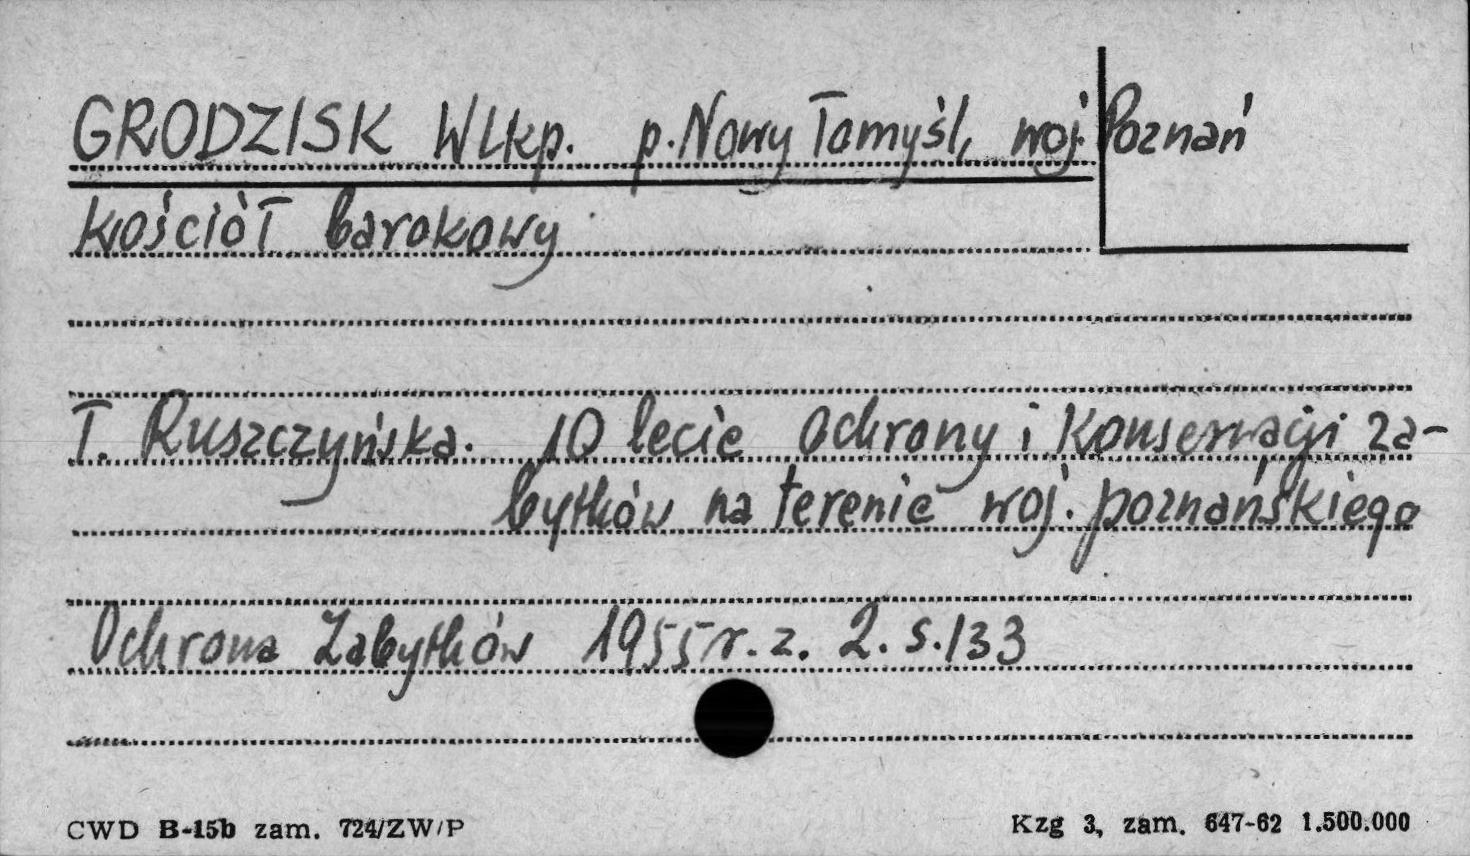 GRODZISK Wlkp. p. Nowy Tomyśl, woj. Poznań
kościół barokowy
T. Ruszczyńska. 10 lecie Ochrony i Konserwacji za-
bytków na terenie woj. poznańskiego
Ochrona Zabytków 1955 r. z. 2. s. 133
CWD B-15b zam. 724/ZW/P
Kzg 3, zam. 647-62 1.500.000